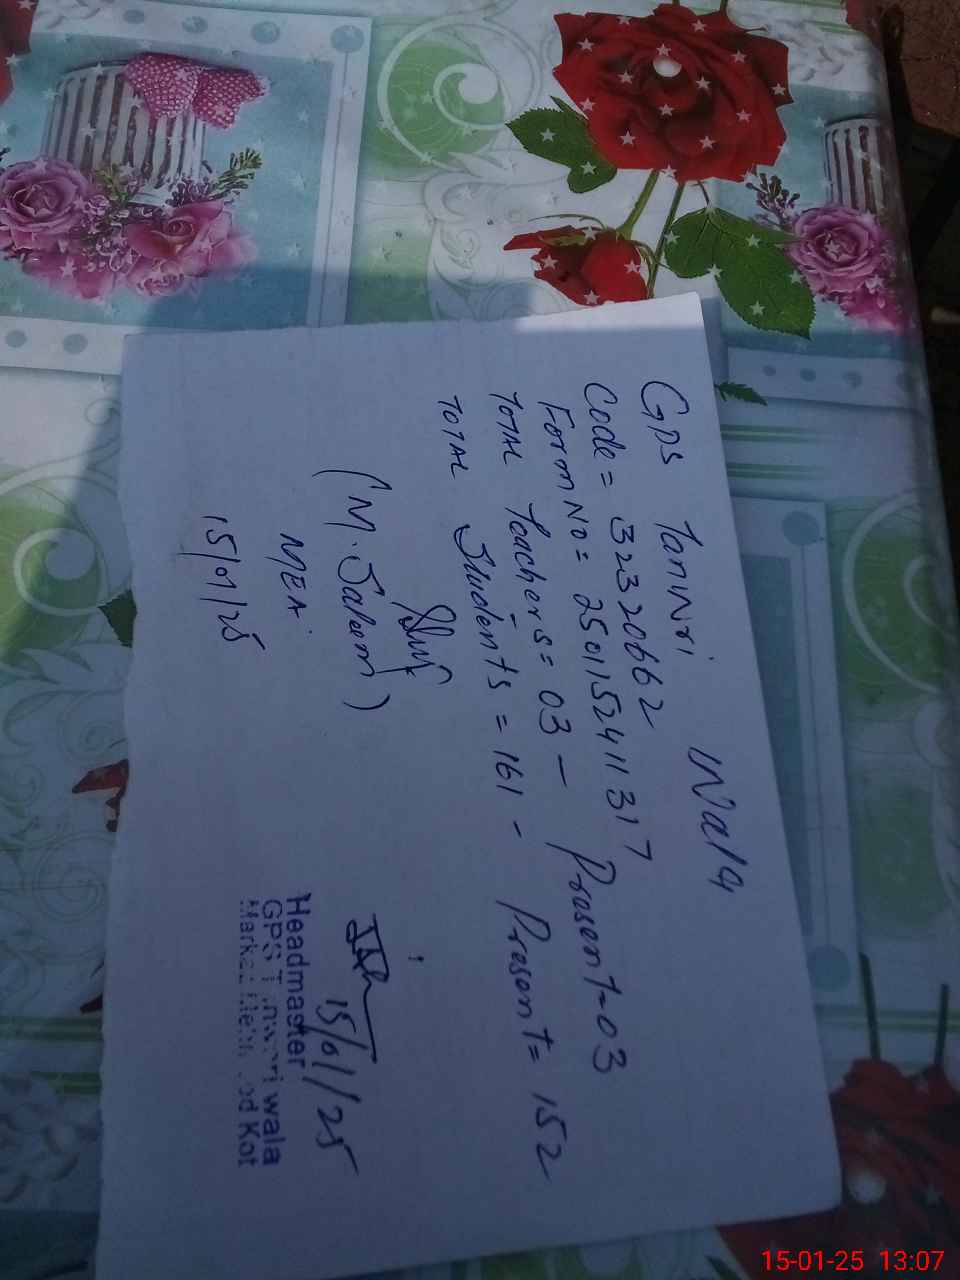 GPS Tannri Wala
Code = 32320662
Form No = 2501152411317
TOTAL Teachers = 03 - Present-03
TOTAL Students = 161 - Present = 152
(M. Saleem)
MEA
15/01/25
15/01/25
Headmaster
GPS wala
Kot
15-01-25 13:07